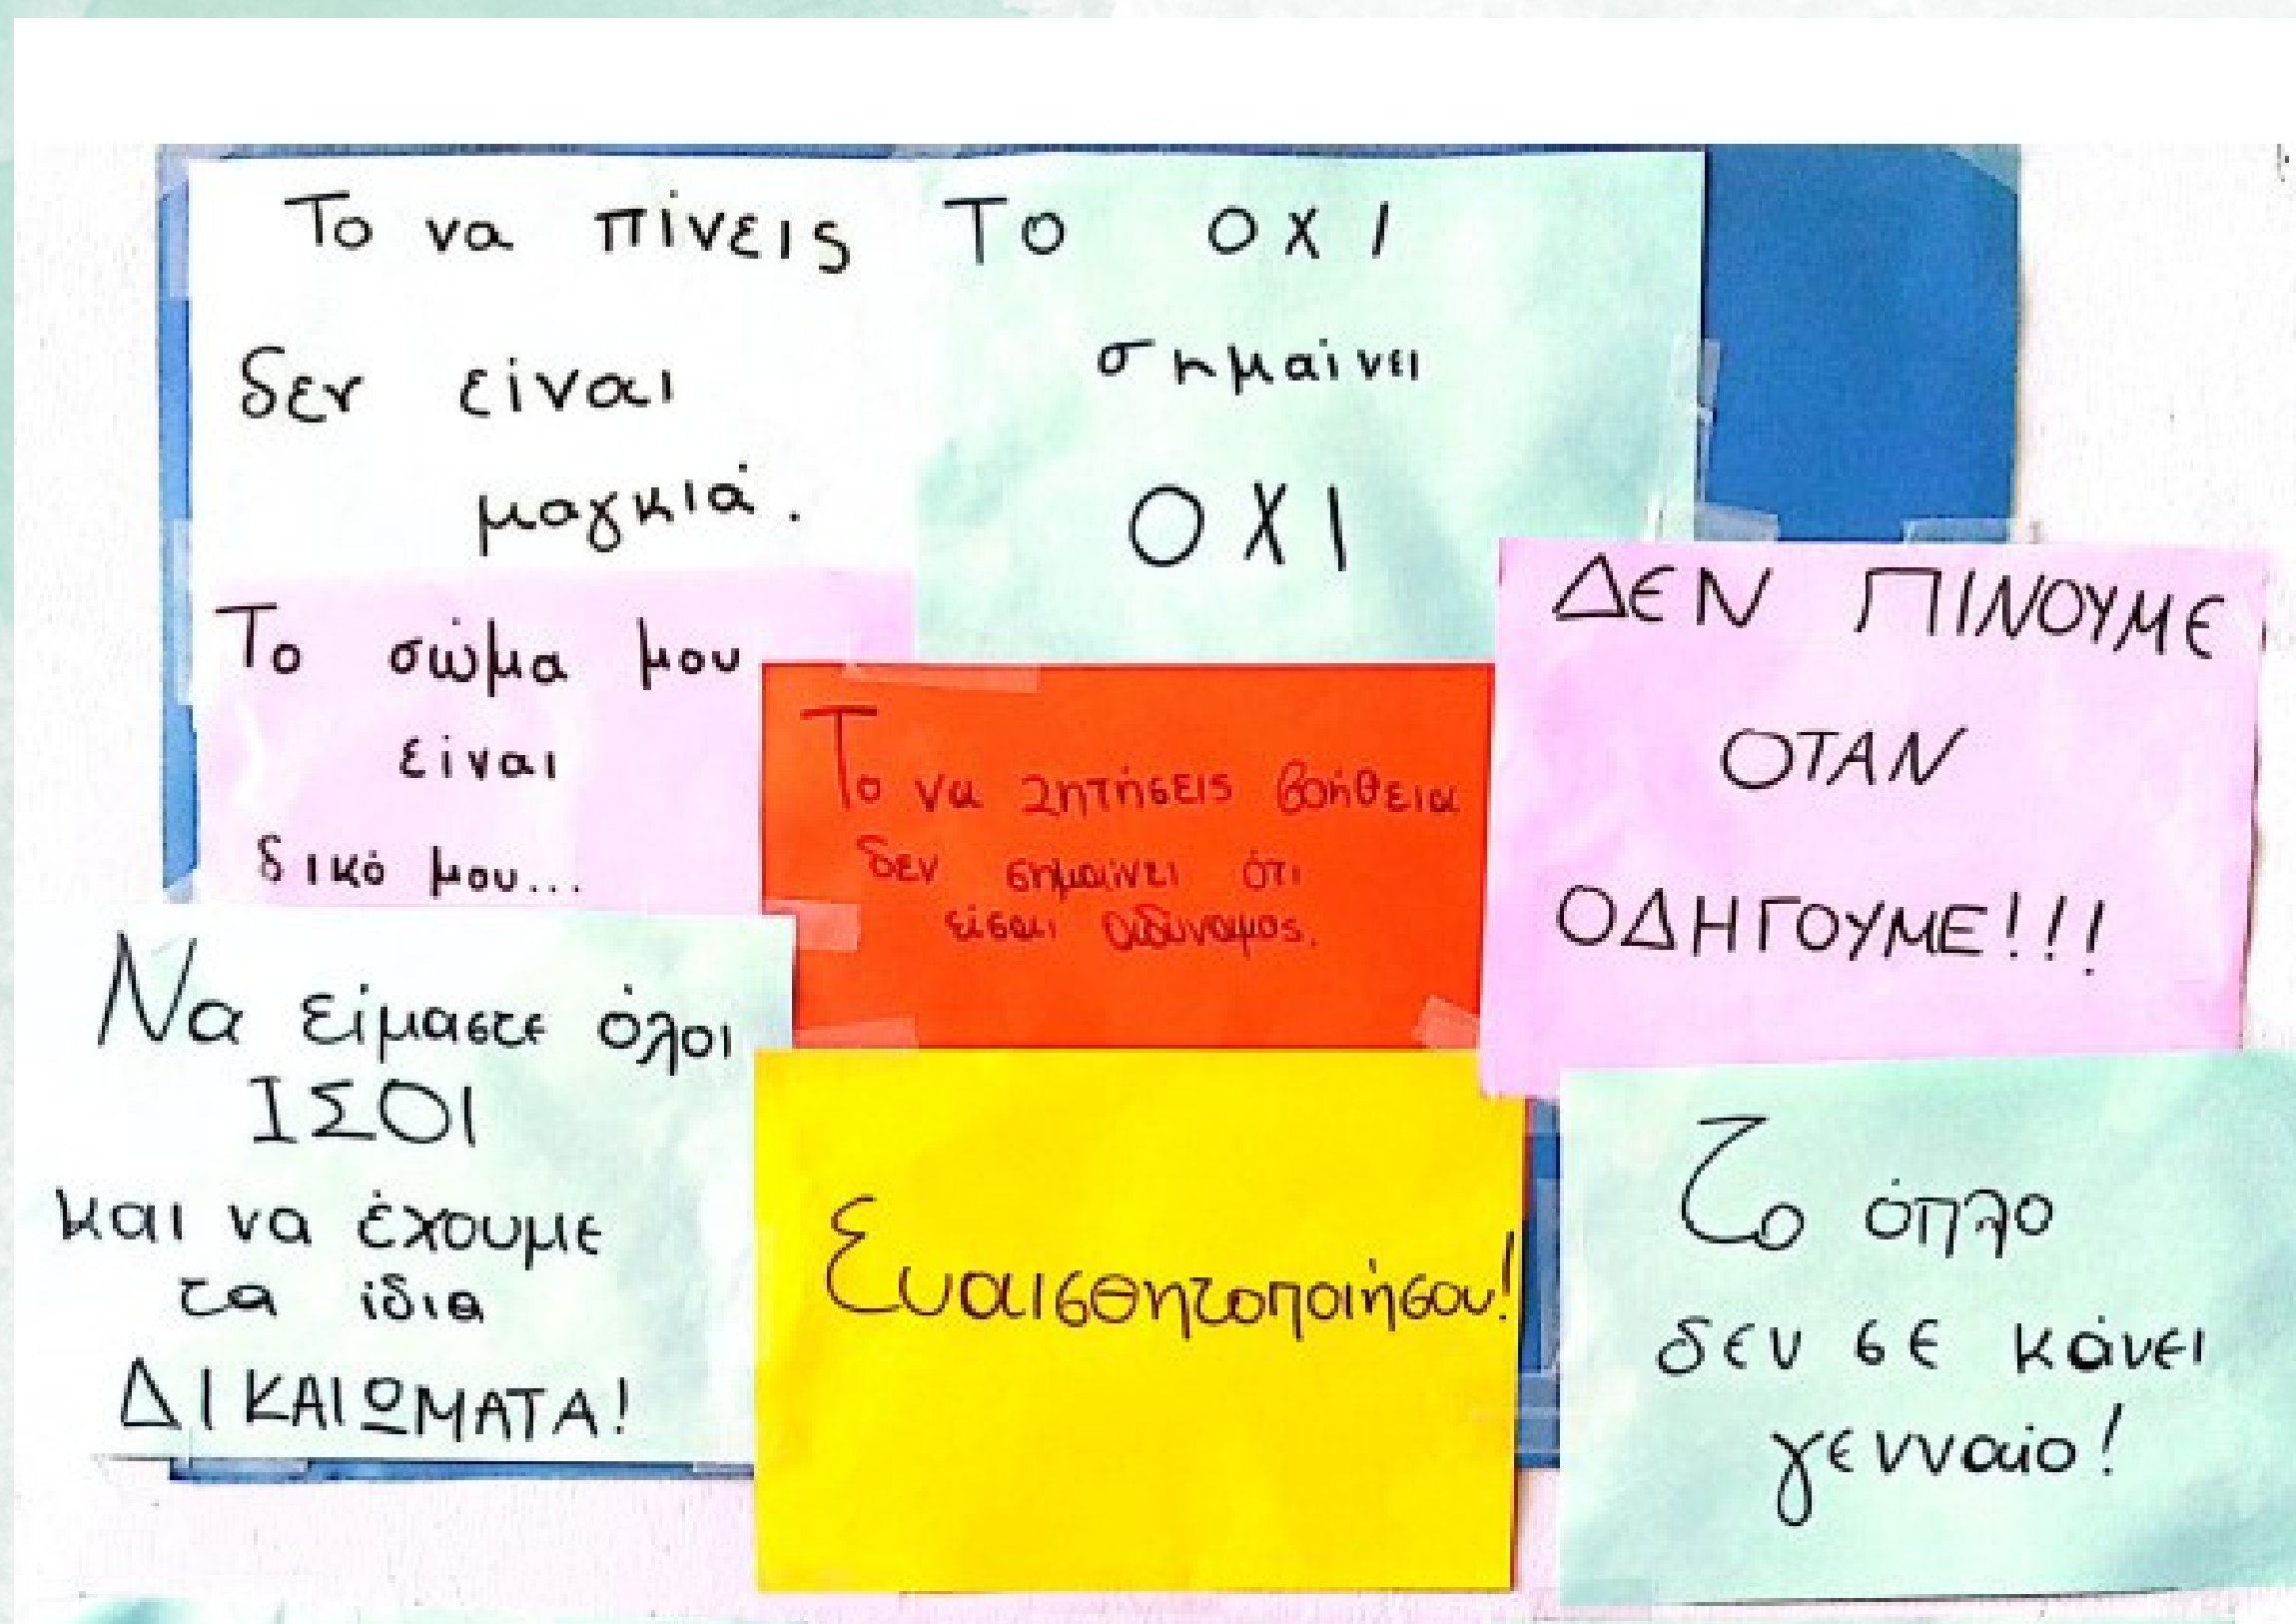 Το να πίνεις
δεν είναι
μαγκιά.
ΤΟ ΟΧΙ
σημαίνει
ΟΧΙ
Το σώμα μου
είναι
δικό μου...
Το να ζητήσεις βοήθεια
δεν σημαίνει ότι
είσαι αδύναμος.
ΔΕΝ ΠΙΝΟΥΜΕ
ΟΤΑΝ
ΟΔΗΓΟΥΜΕ!!!
Να είμαστε όλοι
ΙΣΟΙ
και να έχουμε
τα ίδια
ΔΙΚΑΙΩΜΑΤΑ!
Ευαισθητοποιήσου!
Το όπλο
δεν σε κάνει
γενναίο!